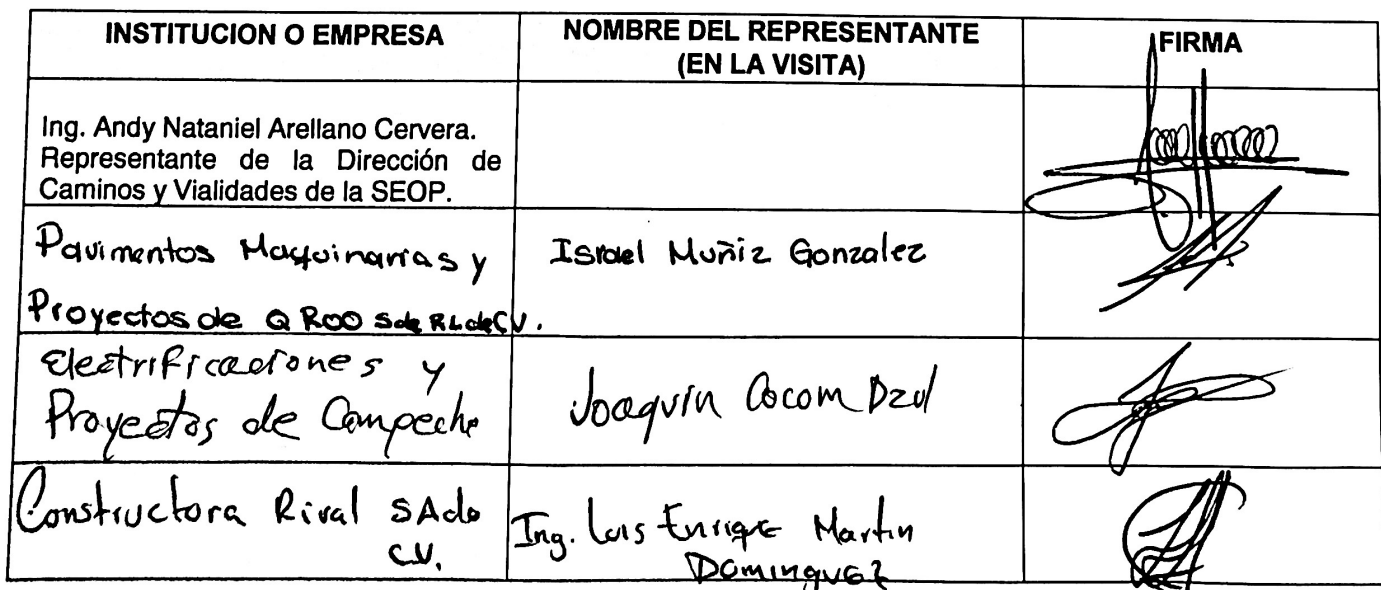 INSTITUCION O EMPRESA
NOMBRE DEL REPRESENTANTE
(EN LA VISITA)
FIRMA
Ing. Andy Nataniel Arellano Cervera.
Representante de la Dirección de
Caminos y Vialidades de la SEOP.
Pavimentos Maquinarias y
Proyectos de Q ROO S de RL de CV.
Israel Muñiz Gonzalez
Electrificaciones y
Proyectos de Campeche
Joaquín Cocom Dzul
Constructora Rival SA de
C.V.
Ing. Luis Enrique Martin
Dominguez